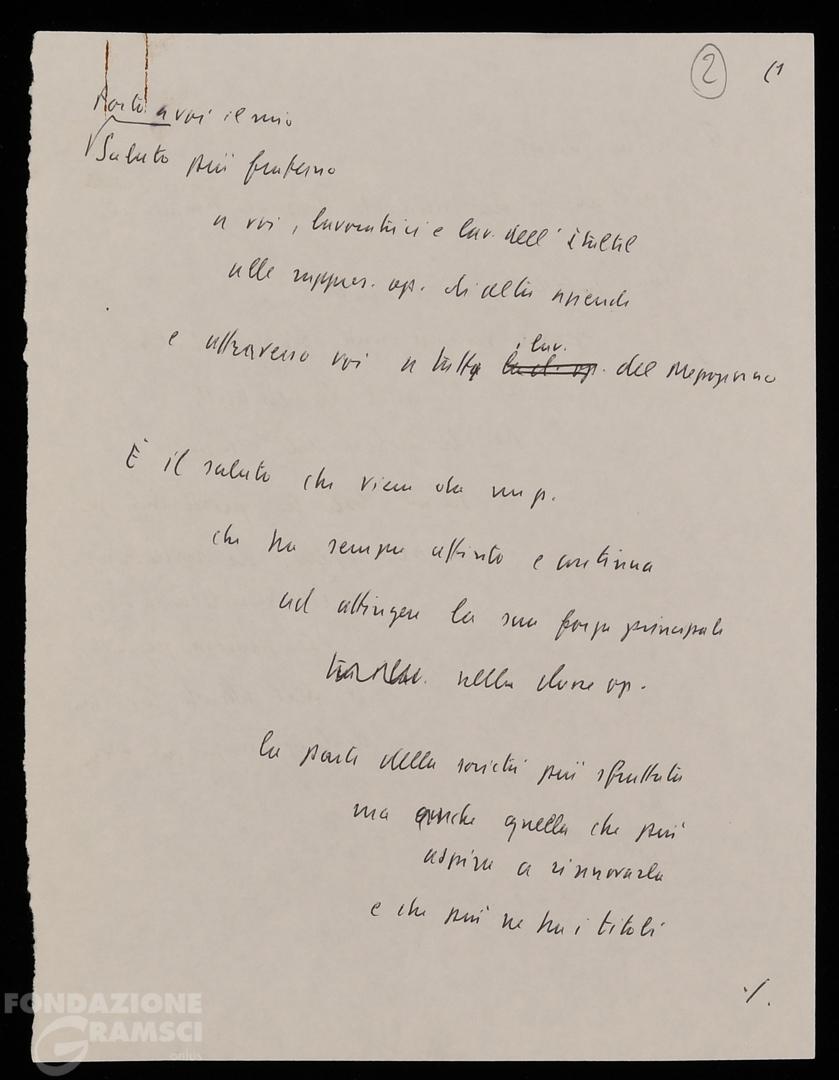 2 (1
Porto a voi il mio
Saluto più fraterno
a voi, lavoratrici e lav. dell'Italtel
alle rappres. op. di altre aziende
i lav.
e attraverso voi a tutti del Mezzogiorno
È il saluto che viene da un p.
che ha sempre attinto e continua
ad attingere la sua forza principale
nella classe op.
la parte della società più sfruttata
ma anche quella che più
aspira a rinnovarla
e che più ne ha i titoli
./.
FONDAZIONE
GRAMSCI
onlus